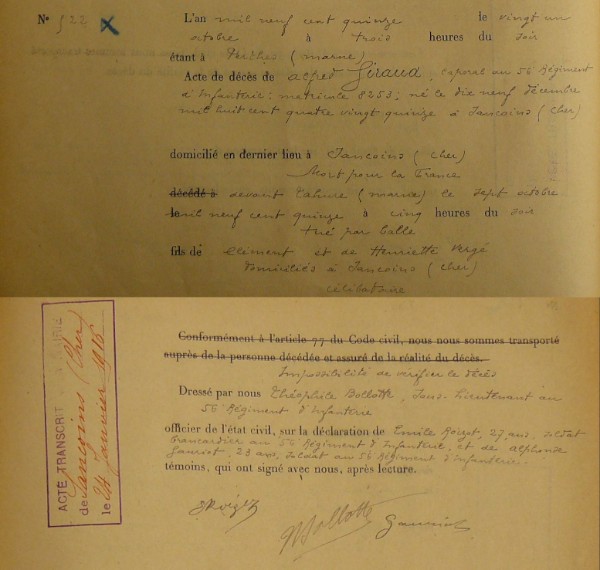 N° 522
L'an mil neuf cent quinze le vingt un
octobre à trois heures du soir
étant à Perthes (marne)
Acte de décès de alfred Giraud, caporal au 56 Régiment
d'Infanterie; matricule 8253; né le dix neuf décembre
mil huit cent quatre vingt quinze à Sancoins (cher)
domicilié en dernier lieu à Sancoins (cher)
Mort pour la France
décédé à devant Tahure (marne) le sept octobre
le mil neuf cent quinze à cinq heures du soir
tué par balle
fils de Clément et de Henriette Vergé
domiciliés à Sancoins (cher)
célibataire
Conformément à l'article 77 du Code civil, nous nous sommes transporté
auprès de la personne décédée et assuré de la réalité du décès.
Impossibilité de vérifier le décès
Dressé par nous Théophile Bollotte, Sous-Lieutenant au
56 Régiment d'Infanterie
officier de l'état civil, sur la déclaration de Emile 27 ans, soldat
brancardier au 56 Régiment d'Infanterie, et de alphonse
Gauriot, 23 ans, soldat au 56 Régiment d'Infanterie.
témoins, qui ont signé avec nous, après lecture.
Bollotte Gauriot
ACTE TRANSCRIT à la Mairie
de Sancoins (Cher)
le 24 Janvier 1916